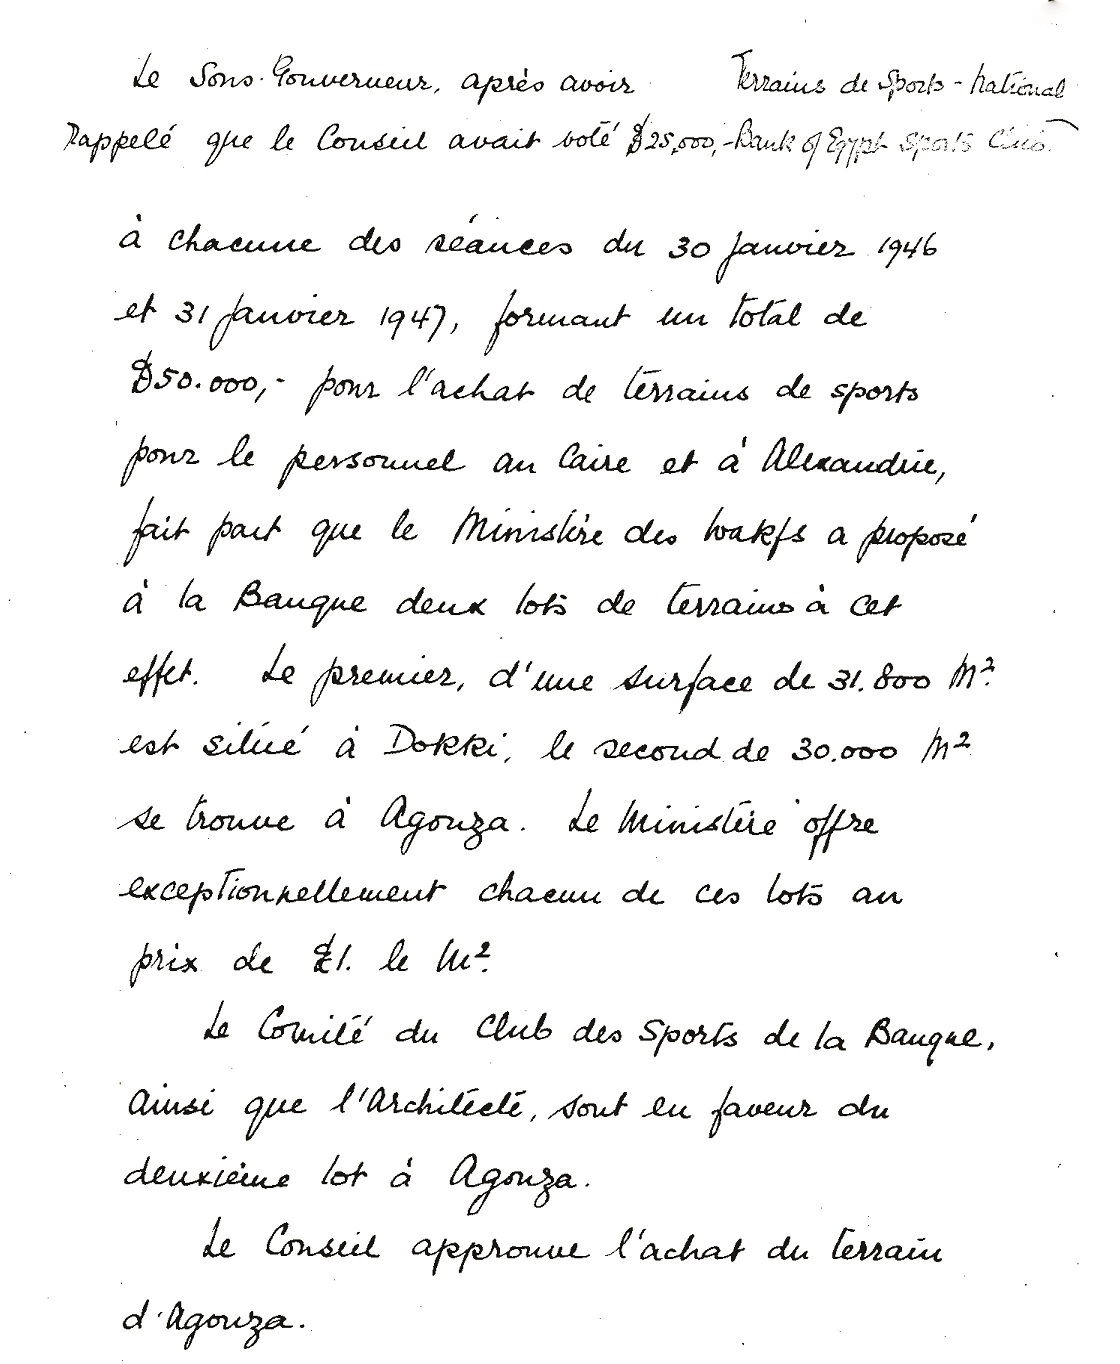 Le Sous-Gouverneur, après avoir
Terrains de Sports - National
Rappelé que le Conseil avait voté £25,000,-
Bank of Egypt Sports Club.
à chacune des séances du 30 Janvier 1946
et 31 Janvier 1947, formant un total de
£50.000,- pour l'achat de terrains de sports
pour le personnel au Caire et à Alexandrie,
fait part que le Ministère des Wakfs a proposé
à la Banque deux lots de terrains à cet
effet. Le premier, d'une surface de 31.800 M².
est situé à Dokki, le second de 30.000 M²
se trouve à Agouza. Le Ministère offre
exceptionnellement chacun de ces lots au
prix de £1. le M².
Le Comité du Club des Sports de la Banque,
ainsi que l'Architecte, sont en faveur du
deuxième lot à Agouza.
Le Conseil approuve l'achat du terrain
d'Agouza.